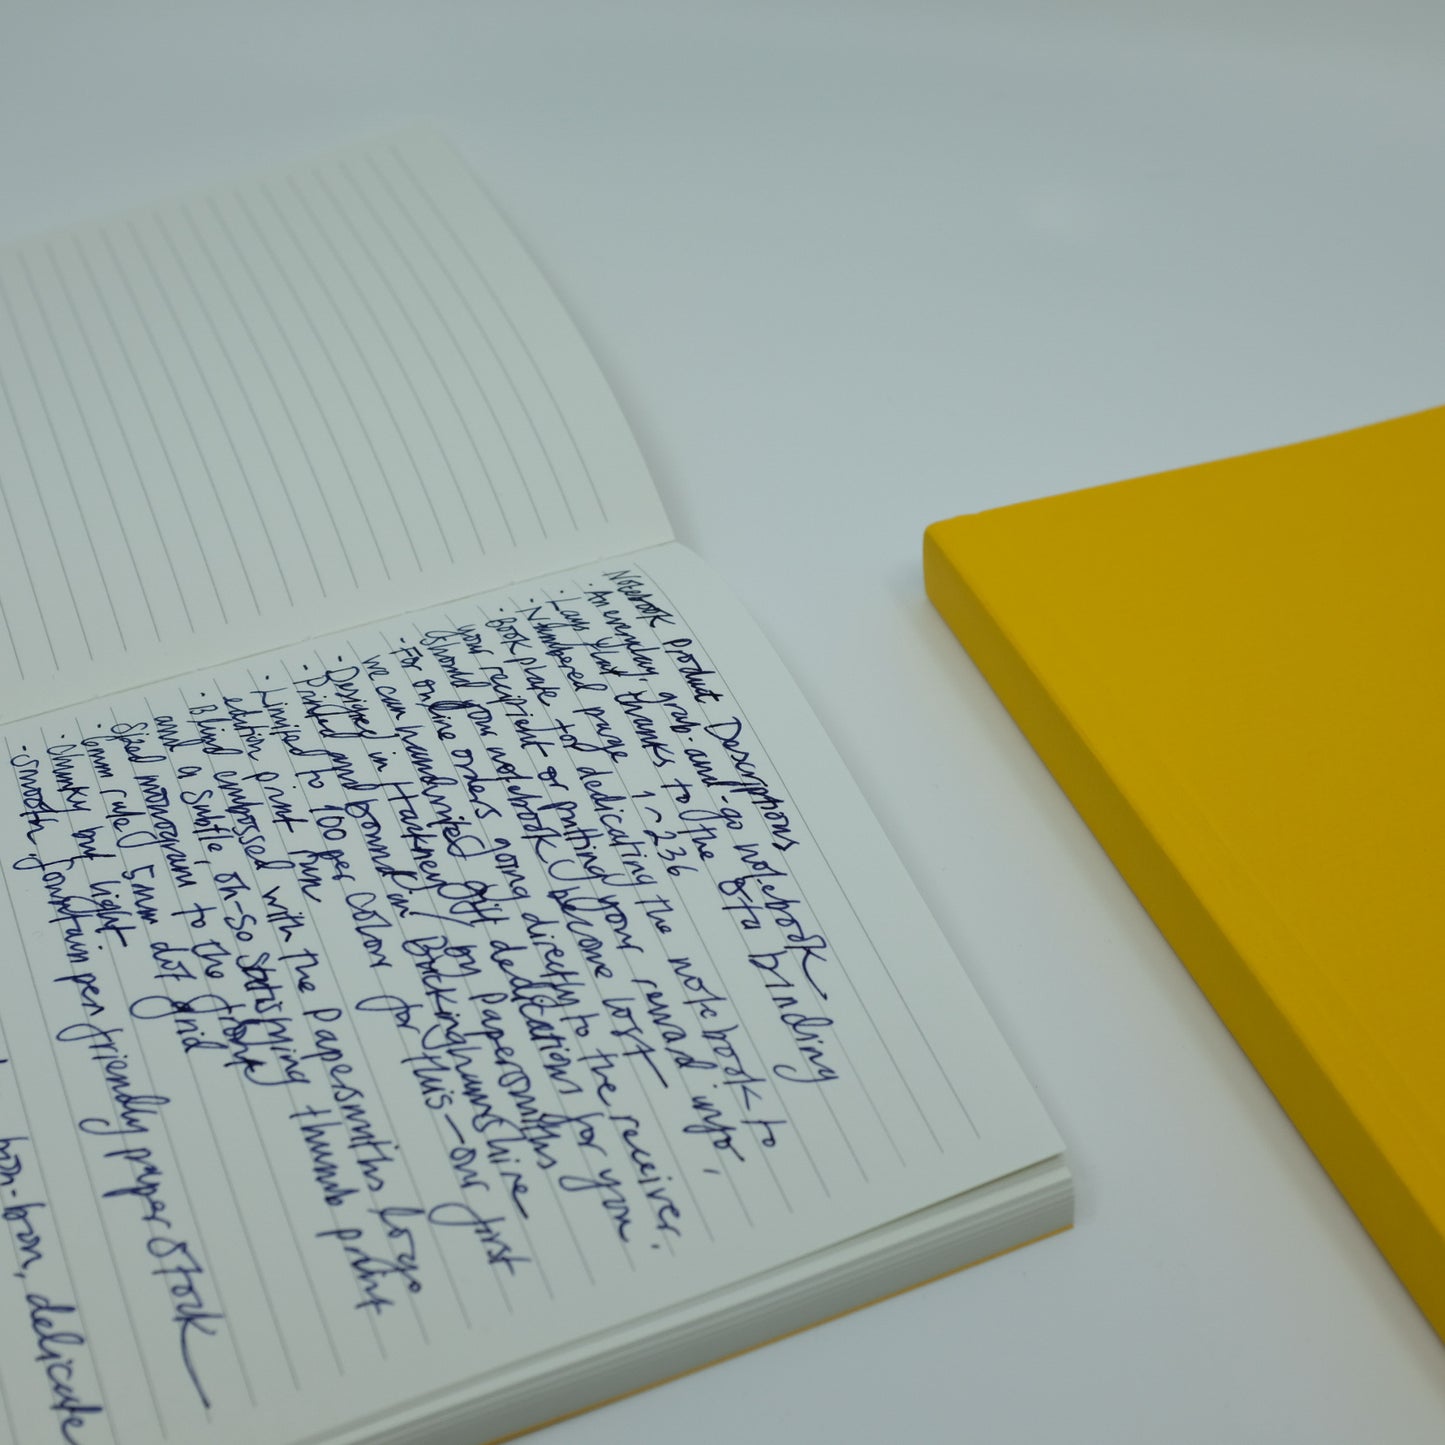 Notebook Product Descriptions
· An everyday, grab-and-go notebook
· Lays flat thanks to the Ota binding
· Numbered page 1-236
· Book plate for dedicating the notebook to
your recipient or putting your reward info,
should your notebook become lost
· For online orders going directly to the receiver,
we can handwrite gift dedications for you.
· Designed in Hackney by Papersmiths
· Printed and bound in Buckinghamshire
· Limited to 100 per color for this - our first
edition print run
· Blind embossed with the Papersmiths logo
and a subtle, oh-so satisfying thumb print
sized monogram to the front
· 6mm ruled 5mm dot grid
· Chunky but light
· Smooth, fountain pen friendly paper stock
bon-bon, delicate